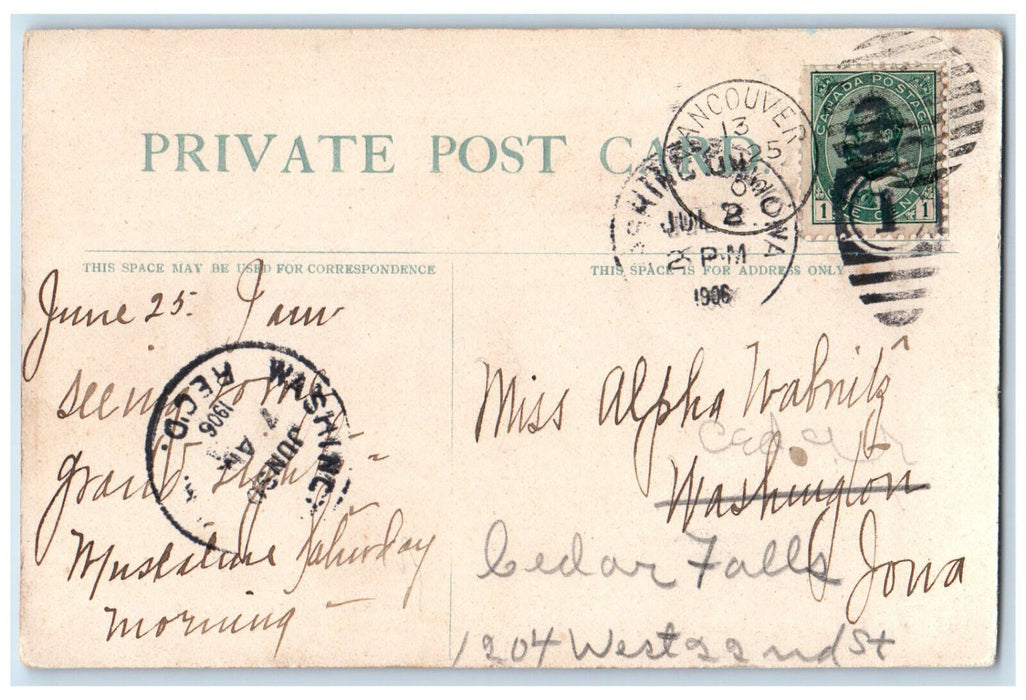 PRIVATE POST CARD.
VANCOUVER
13
25
CANADA POSTAGE
1 ONE CENT 1
WASHINGTON IOWA
JUL 2
2 P.M
1906
1
THIS SPACE MAY BE USED FOR CORRESPONDENCE
THIS SPACE IS FOR ADDRESS ONLY
June 25. I am
seeing some
grand
Muscatine Saturday
morning
WASHINGT
JUN 30
7 AM
1906
REC'D.
Miss Alpha Wabnitz
Cedar
Washington
Cedar Falls
Iowa
1204 West 22nd St